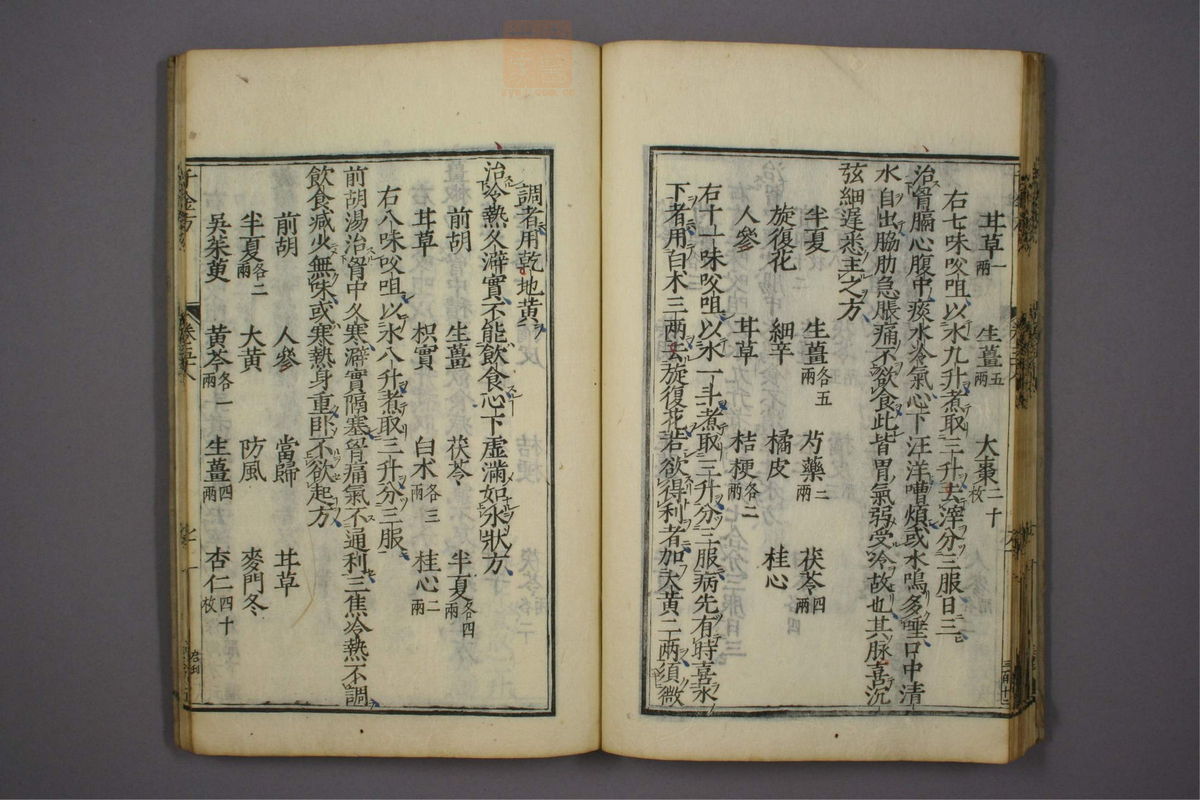 甘草一兩 生薑五兩 大棗二十枚
右七味㕮咀以水九升煮取三升去滓分三服日三
治胷膈心腹中痰水冷氣心下汪洋嘈煩或水鳴多唾口中清
水自出脇肋急脹痛不欲食此皆胃氣弱受冷故也其脉喜沉
弦細遲悉主之方
半夏 生薑各五兩 芍藥二兩 茯苓四兩
旋復花 細辛 橘皮 桂心
人參 甘草 桔梗各二兩
右十一味㕮咀以水一斗煮取三升分三服病先有時喜水
下者用白朮三兩去旋復花若欲得利者加大黃二兩須微
調者用乾地黃
治冷熱久澼實不能飲食心下虛滿如水狀方
前胡 生薑 茯苓 半夏各四兩
甘草 枳實 白朮各三兩 桂心二兩
右八味㕮咀以水八升煮取三升分三服
前胡湯治胷中久寒澼實隔塞胷痛氣不通利三焦冷熱不調
飲食減少無味或寒熱身重卧不欲起方
前胡 人參 當歸 甘草
半夏各二兩 大黃 防風 麥門冬
吳茱萸 黃芩各一兩 生薑四兩 杏仁四十枚
千金方